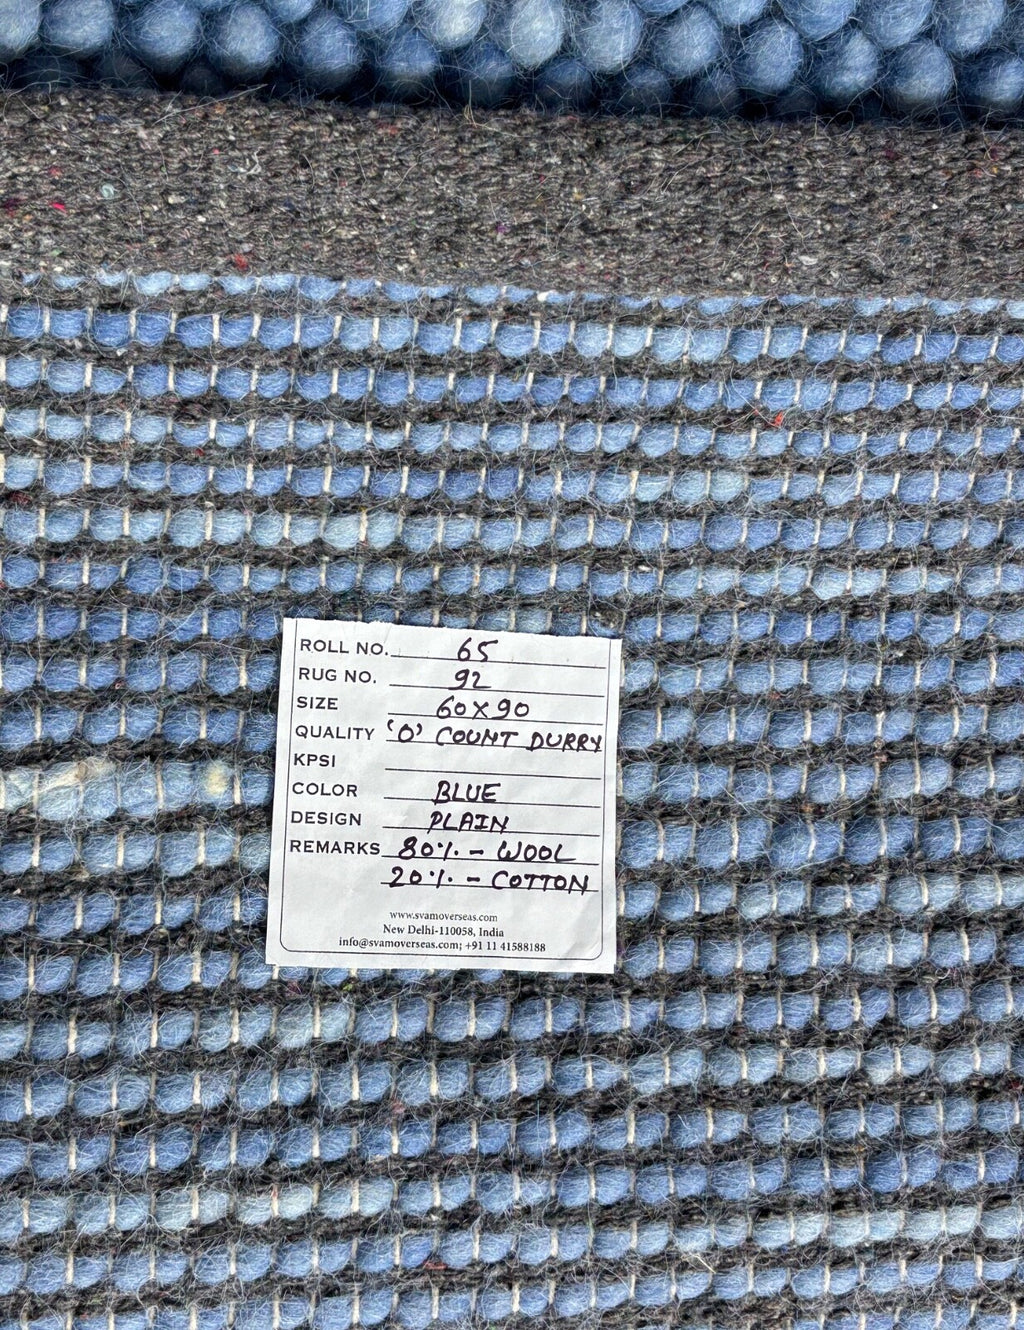 ROLL NO. 65
RUG NO. 92
SIZE 60X90
QUALITY 'O' COUNT DURRY
KPSI
COLOR BLUE
DESIGN PLAIN
REMARKS 80% - WOOL
20% - COTTON
www.svamoverseas.com
New Delhi-110058, India
info@svamoverseas.com; +91 11 41588188